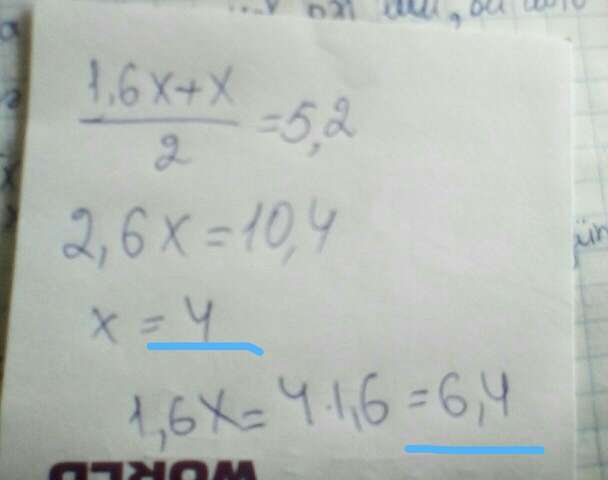 1.6x+x
2
=5,2
2,6x=10,4
x=4
1,6x=4·1,6=6,4
WORLD